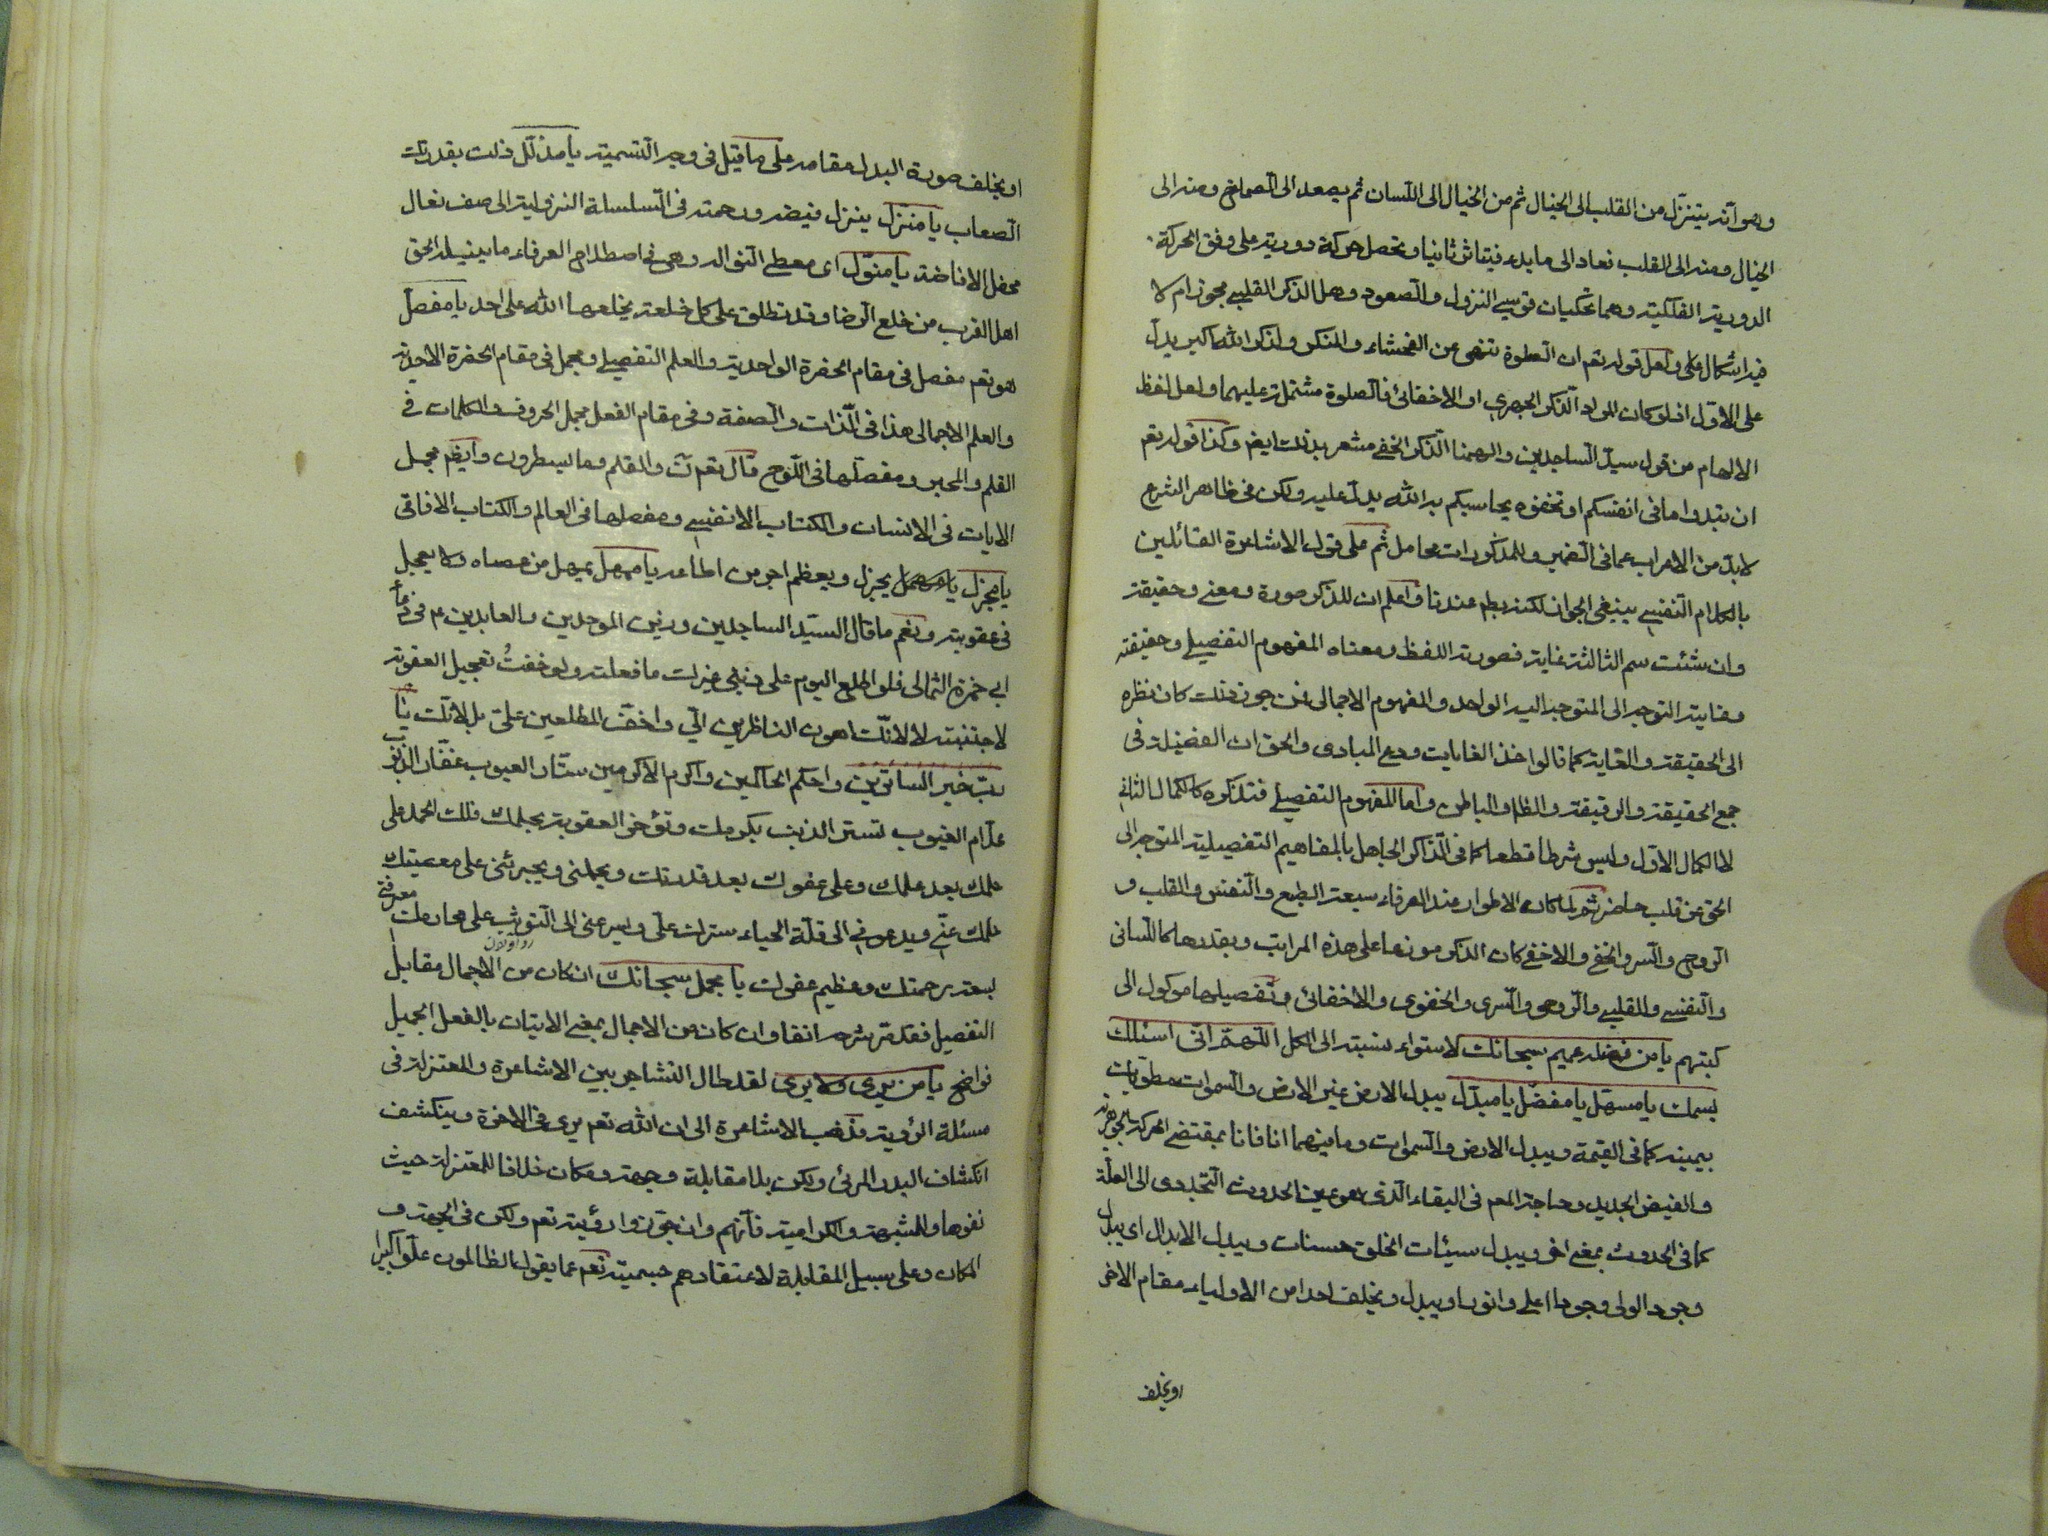 وهو انه يتنزل من القلب الى الخيال ثم من الخيال الى اللسان ثم يصعد الى الصماخ ومنه الى
الخيال ومنه الى القلب فعاد الى ما بدء فيتاثر ثانيا وتحصل حركة دورية على وفق الحركة
الدورية الفلكية وهما تحكيان قوسى النزول والصعود وهل الذكر القلبى مجوز ام لا
فيه اشكال على ولعل قوله تعم ان الصلوة تنهى عن الفحشاء والمنكر ولذكر الله اكبر يدل
على الاول اذ لو كان المراد الذكر الجهرى او الاخفائى فالصلوة مشتملة عليهما ولعل لفظ
الالهام من قول سيد الساجدين والهمنا الذكر الخفى مشعر بذلك ايضم وكذا قوله تعم
ان تبدوا ما فى انفسكم او تخفوه يحاسبكم به الله يدل عليه ولكن فى ظاهر الشرع
لا بد من الاعراب عما فى الضمير وللمذكورات محامل ثم على قول الاشاعرة القائلين
بالكلام النفسى ينبغى الجواز لكنه بطم عندنا واعلم ان للذكر صورة ومعنى وحقيقة
وان شئت سم الثالثة غاية فصورته اللفظ ومعناه المفهوم التفصيلى وحقيقته
وغايته التوجه الى المتوجه اليه الواحد والمفهوم الاجمالى فمن جوز ذلك كان نظره
الى الحقيقة والغاية كما قالوا خذ الغايات ودع المبادى والحق ان الفضيلة فى
جمع الحقيقة والرقيقة والظاهر والباطن واما المفهوم التفصيلى فتذكره كالكمال الثانى
لها الكمال الاول وليس شرطا قطعا كما فى الذاكر الجاهل بالمفاهيم التفصيلية المتوجه الى
الحق عن قلب حاضر ثم لما كان الاطوار عند العرفاء سبعة الطبع والنفس والقلب و
الروح والسر والخفى والاخفى كان الذكر موزعا على هذه المراتب وبقدرها كاللسانى
والنفسى والقلبى والروحى والسرى والخفوى والاخفائى وتفصيلها موكول الى
كتبهم يا من فضله عميم سبحانك لاستواء نسبته الى الكل اللهم انى اسئلك
بسمك يا مسهل يا مفضل يا مبدل يبدل الارض غير الارض والسموات مطويات
بيمينه كما فى القيمة ويبدل الارض والسموات وما بينهما انا فانا بمقتضى الحركة الجوهرية
والفيض الجديد وحاجة المعم فى البقاء الذى هو عين الحدوث التجددى الى العلة
كما فى الحدوث بمعنى اخر ويبدل سيئات الخلق حسنات ويبدل الابدال اى يبدل
وجود الولى وجودا اعلى وانور او يبدل ويخلف احدا من الاولياء مقام الاخر
او يخلف
او يخلف صورة البدل مقامه على ما قيل فى وجه التسمية يا مذلل ذلت بقدرتك
الصعاب يا منزل ينزل فيضه ورحمته فى السلسلة النزولية الى صف نعال
محفل الافاضة يا منول اى معطى النوال وهى فى اصطلاح العرفاء ما ينيله الحق
اهل القرب من خلع الرضا وقد تطلق على كل خلعة يخلعها الله على احد يا مفصل
هو تعم مفصل فى مقام الحضرة الواحدية والعلم التفصيلى ومجمل فى مقام الحضرة الاحدية
والعلم الاجمالى هذا فى الذات والصفة وفى مقام الفعل مجمل الحروف والكلمات فى
القلم والمحبر ومفصلها فى اللوح قال تعم ن والقلم وما يسطرون وايضم مجمل
الايات فى الانسان والكتاب الانفسى ومفصلها فى العالم والكتاب الافاقى
يا مجزل يجزل ويعظم اجر من اطاعه يا ممهل يمهل من عصاه ولا يعجل
فى عقوبته ونعم ما قال السيد الساجدين وزين الموحدين والعابدين ع فى دعاء
ابى حمزة الثمالى فلو اطلع اليوم على ذنبى غيرك ما فعلته ولو خفت تعجيل العقوبة
لاجتنبته لا لانك اهون الناظرين الى واخف المطلعين على بل لانك يا
رب خير الساترين واحكم الحاكمين واكرم الاكرمين ستار العيوب غفار الذنوب
علام الغيوب تستر الذنب بكرمك وتؤخر العقوبة بحلمك فلك الحمد على
حلمك بعد علمك وعلى عفوك بعد قدرتك ويحملنى ويجرئنى على معصيتك
حلمك عنى ويدعونى الى قلة الحياء سترك على ويسرعنى الى التوثب على محارمك معرفتى
بسعة رحمتك وعظيم عفوك يا مجمل سبحانك ان كان من الاجمال مقابل
التفصيل فقد مر شرحه انفا وان كان من الاجمال بمعنى الاتيان بالفعل الجميل
فواضح يا من يرى ولا يرى لقد طال التشاجر بين الاشاعرة والمعتزلة فى
مسئلة الرؤية فذهب الاشاعرة الى ان الله تعم يرى فى الاخرة وينكشف
انكشاف البدر المرئى ولكن بلا مقابلة وجهة ومكان خلافا للمعتزلة حيث
نفوها وللمشبهة والكرامية فانهم وان جوزوا رؤيته تعم ولكن فى الجهة و
المكان وعلى سبيل المقابلة لاعتقادهم جسميته تعم عما يقول الظالمون علوا كبيرا